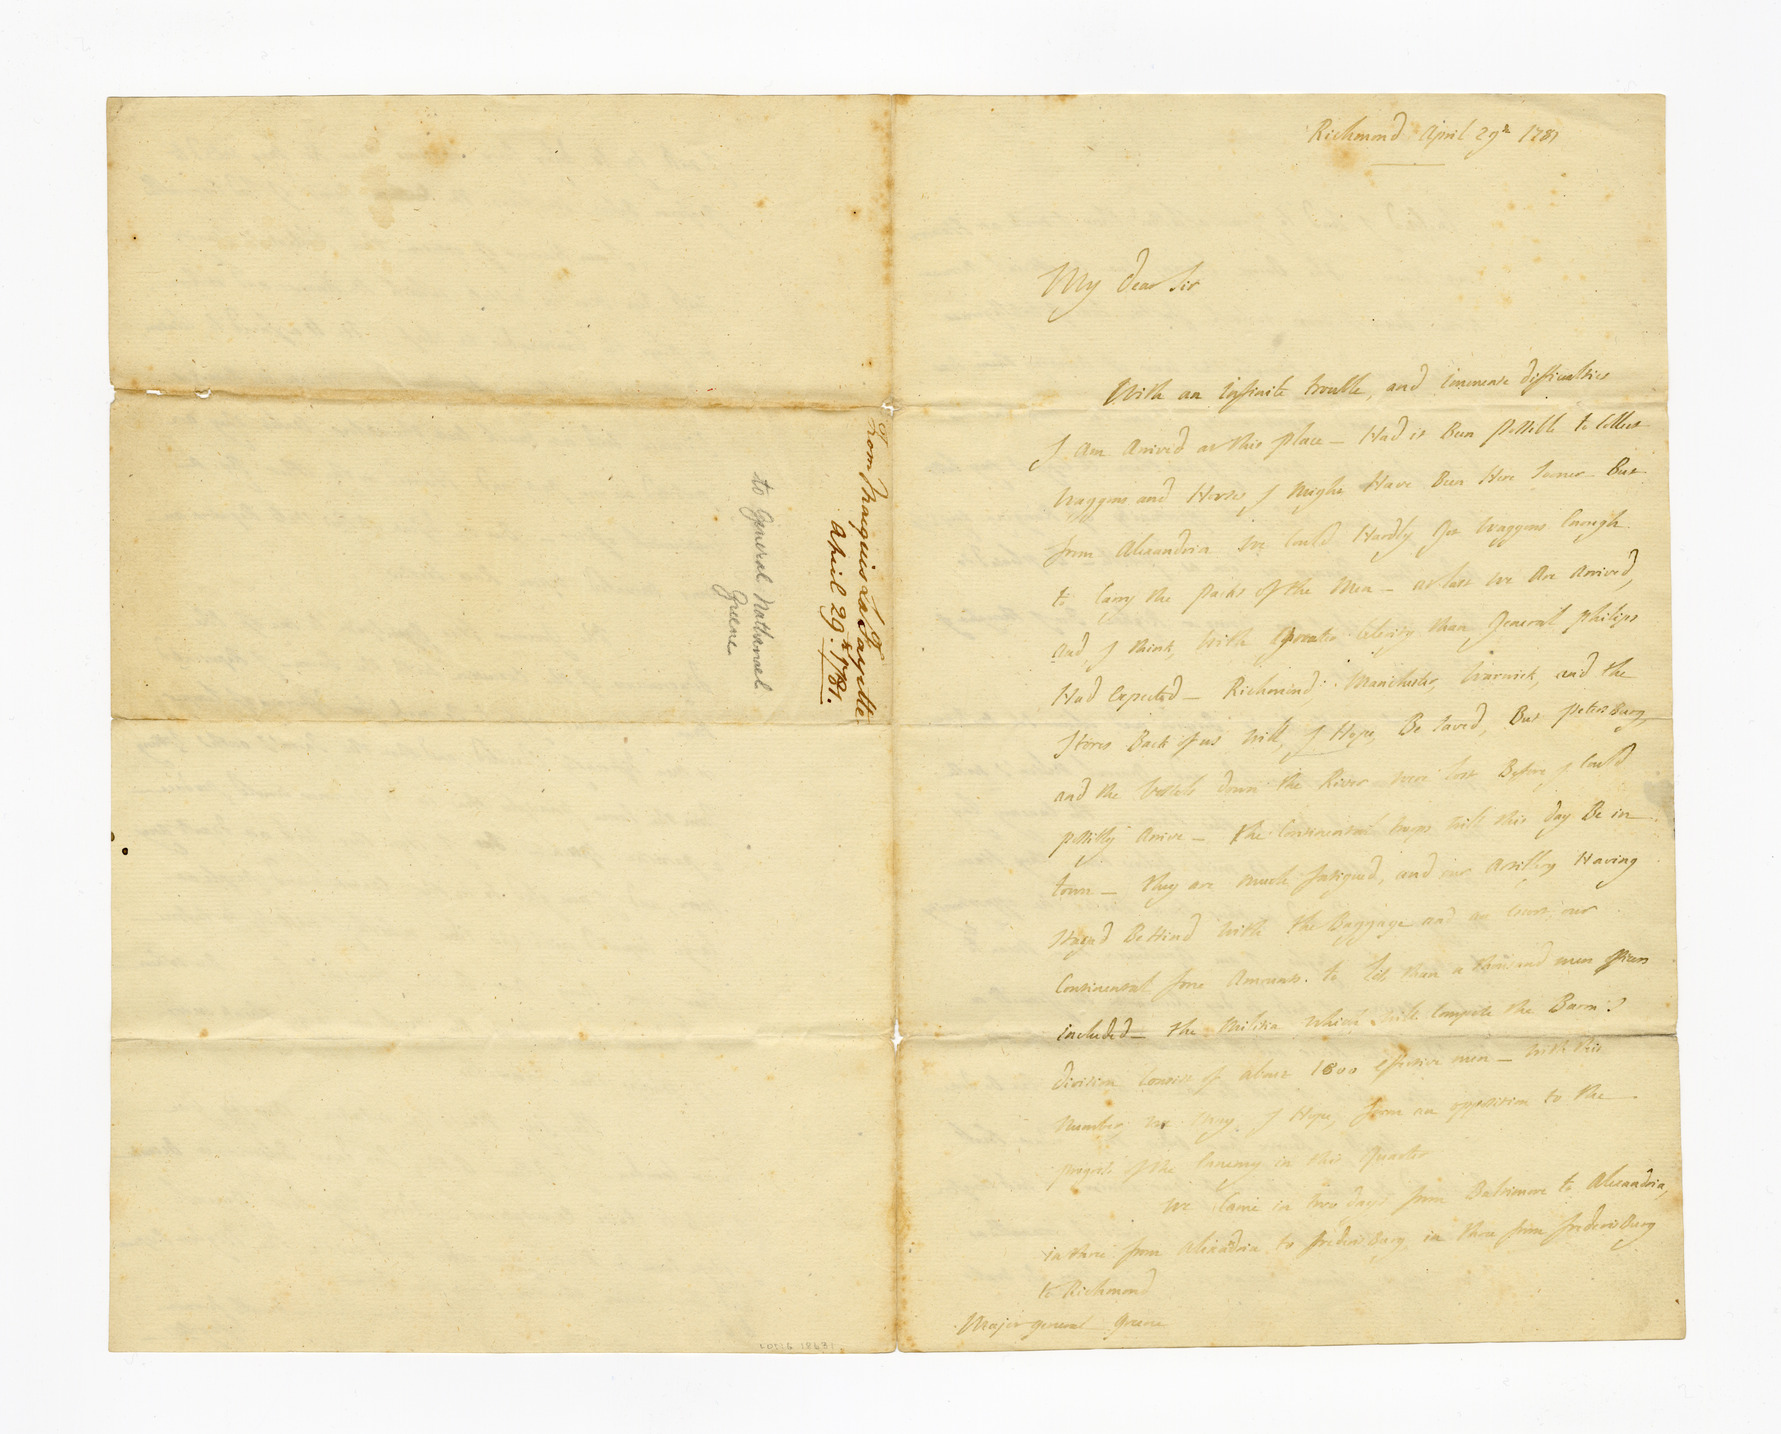 From Marquis La Fayette
April 29th 1781.
to General Nathanael
Greene
Richmond April 29h 1781
My dear Sir
With an infinite trouble, and immense difficulties
I am Arrived at this place — Had it Been possible to Collect
Waggons and Horses I might Have Been Here sooner But
from Alexandria we Could Hardly Get Waggons Enough
to Carry the packs of the Men — at last we Are Arrived,
and, I think, with Greater Celerity than General philips
Had Expected — Richmond Manchester, Warwick, and the
stores Back of us will, I Hope, Be saved, But petersburg,
and the Vessels down the River were lost Before I Could
possibly Arrive — the Continental troops will this day Be in
town — they are much fatigued, and our Artillery Having
stayed Behind with the Baggage and an Escort our
Continental force Amounts to less than a thousand men officers
included — the Militia which will Compose the Baron's
division Consist of about 1800 effective men — with this
Number, we May, I Hope, form an opposition to the
progress of the Ennemy in this Quarter
We Came in two days from Baltimore to Alexandria,
in three from Alexandria to frederisBurg in three from frederisBurg
to Richmond
Major general Greene